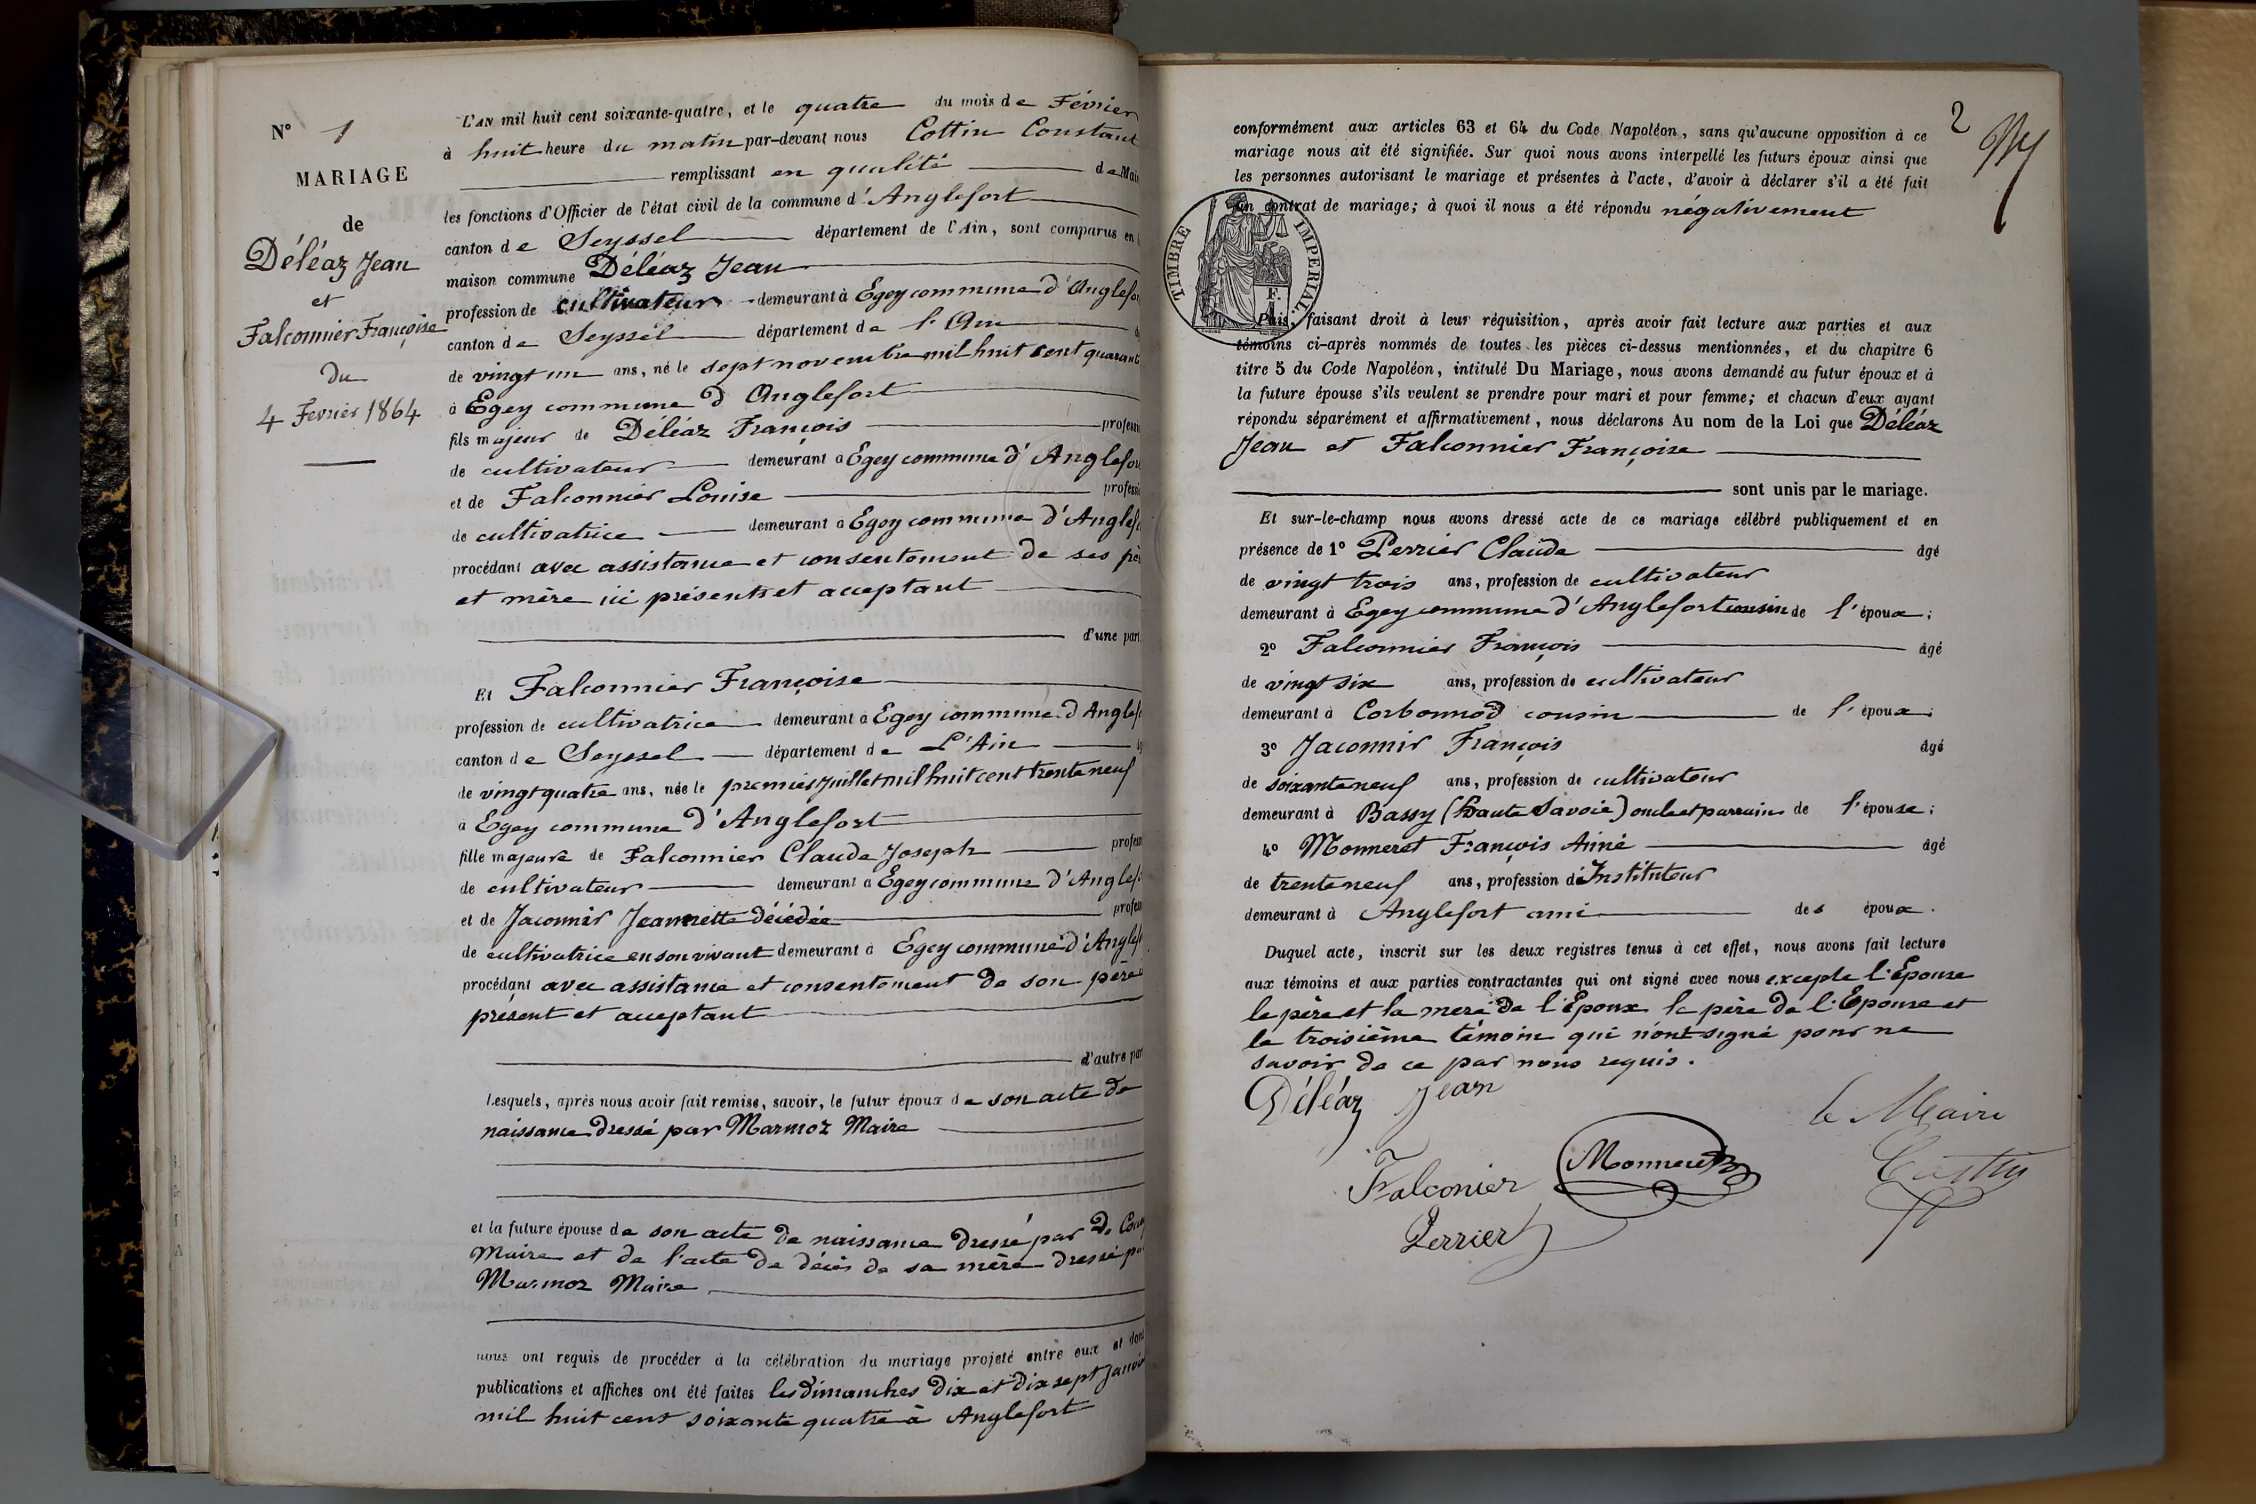 N° 1
MARIAGE
de
Déléaz Jean
et
Falconnier Françoise
du
4 Fevrier 1864
L'AN mil huit cent soixante-quatre, et le quatre du mois de Février
à huit heure du matin par-devant nous Cottin Constant
remplissant en qualité de Mai
les fonctions d'Officier de l'état civil de la commune d'Anglefort
canton de Seyssel département de l'Ain, sont comparus en
maison commune Déléaz Jean
profession de cultivateur demeurant à Egey commune d'Anglefo
canton de Seyssel département de l'Ain
de vingt un ans, né le sept novembre mil huit cent quarant
à Egey commune d'Anglefort
fils majeur de Déléaz François professi
de cultivateur demeurant à Egey commune d'Anglefor
et de Falconnier Louise professi
de cultivatrice demeurant à Egey commune d'Anglef
procédant avec assistance et consentement de ses pèr
et mère ici présents et acceptant
d'une part,
Et Falconnier Françoise
profession de cultivatrice demeurant à Egey commune d'Anglef
canton de Seyssel département de L'Ain
de vingt quatre ans, née le premier Juillet mil huit cent trente neuf
à Egey commune d'Anglefort
fille majeure de Falconnier Claude Joseph profess
de cultivateur demeurant à Egey commune d'Anglef
et de Jaconnir Jeannette décédée profess
de cultivatrice en son vivant demeurant à Egey commune d'Anglef
procédant avec assistance et consentement de son père
présent et acceptant
d'autre part
Lesquels, après nous avoir fait remise, savoir, le futur époux de son acte de
naissance dressé par Marmoz Maire
et la future épouse de son acte de naissance dressé par De
Maire et de l'acte de décès de sa mère dressé pa
Marmoz Maire
nous ont requis de procéder à la célébration du mariage projeté entre eux et dont
publications et affiches ont été faites les dimanches dix et dix sept Janvie
mil huit cent soixante quatre à Anglefort
2
conformément aux articles 63 et 64 du Code Napoléon, sans qu'aucune opposition à ce
mariage nous ait été signifiée. Sur quoi nous avons interpellé les futurs époux ainsi que
les personnes autorisant le mariage et présentes à l'acte, d'avoir à déclarer s'il a été fait
un contrat de mariage; à quoi il nous a été répondu négativement
TIMBRE IMPERIAL.
F.
Puis, faisant droit à leur réquisition, après avoir fait lecture aux parties et aux
témoins ci-après nommés de toutes les pièces ci-dessus mentionnées, et du chapitre 6
titre 5 du Code Napoléon, intitulé Du Mariage, nous avons demandé au futur époux et à
la future épouse s'ils veulent se prendre pour mari et pour femme; et chacun d'eux ayant
répondu séparément et affirmativement, nous déclarons Au nom de la Loi que Déléaz
Jean et Falconnier Françoise
sont unis par le mariage.
Et sur-le-champ nous avons dressé acte de ce mariage célébré publiquement et en
présence de 1° Perrier Claude âgé
de vingt trois ans, profession de cultivateur
demeurant à Egey commune d'Anglefort cousin de l'époux;
2° Falconnier François âgé
de vingt six ans, profession de cultivateur
demeurant à Corbonnod cousin de l'époux;
3° Jaconnir François âgé
de soixante neuf ans, profession de cultivateur
demeurant à Bassy (haute Savoie) oncle et parrain de l'épouse;
4° Monneret François Aimé âgé
de trente neuf ans, profession d'Instituteur
demeurant à Anglefort ami des époux.
Duquel acte, inscrit sur les deux registres tenus à cet effet, nous avons fait lecture
aux témoins et aux parties contractantes qui ont signé avec nous excepte l'Epouse
le père et la mere de l'Epoux le père de l'Epouse et
le troisième témoin qui n'ont signé pour ne
savoir de ce par nous requis.
Déléaz Jean
le Maire
Monneret
Cottin
Falconier
Perrier